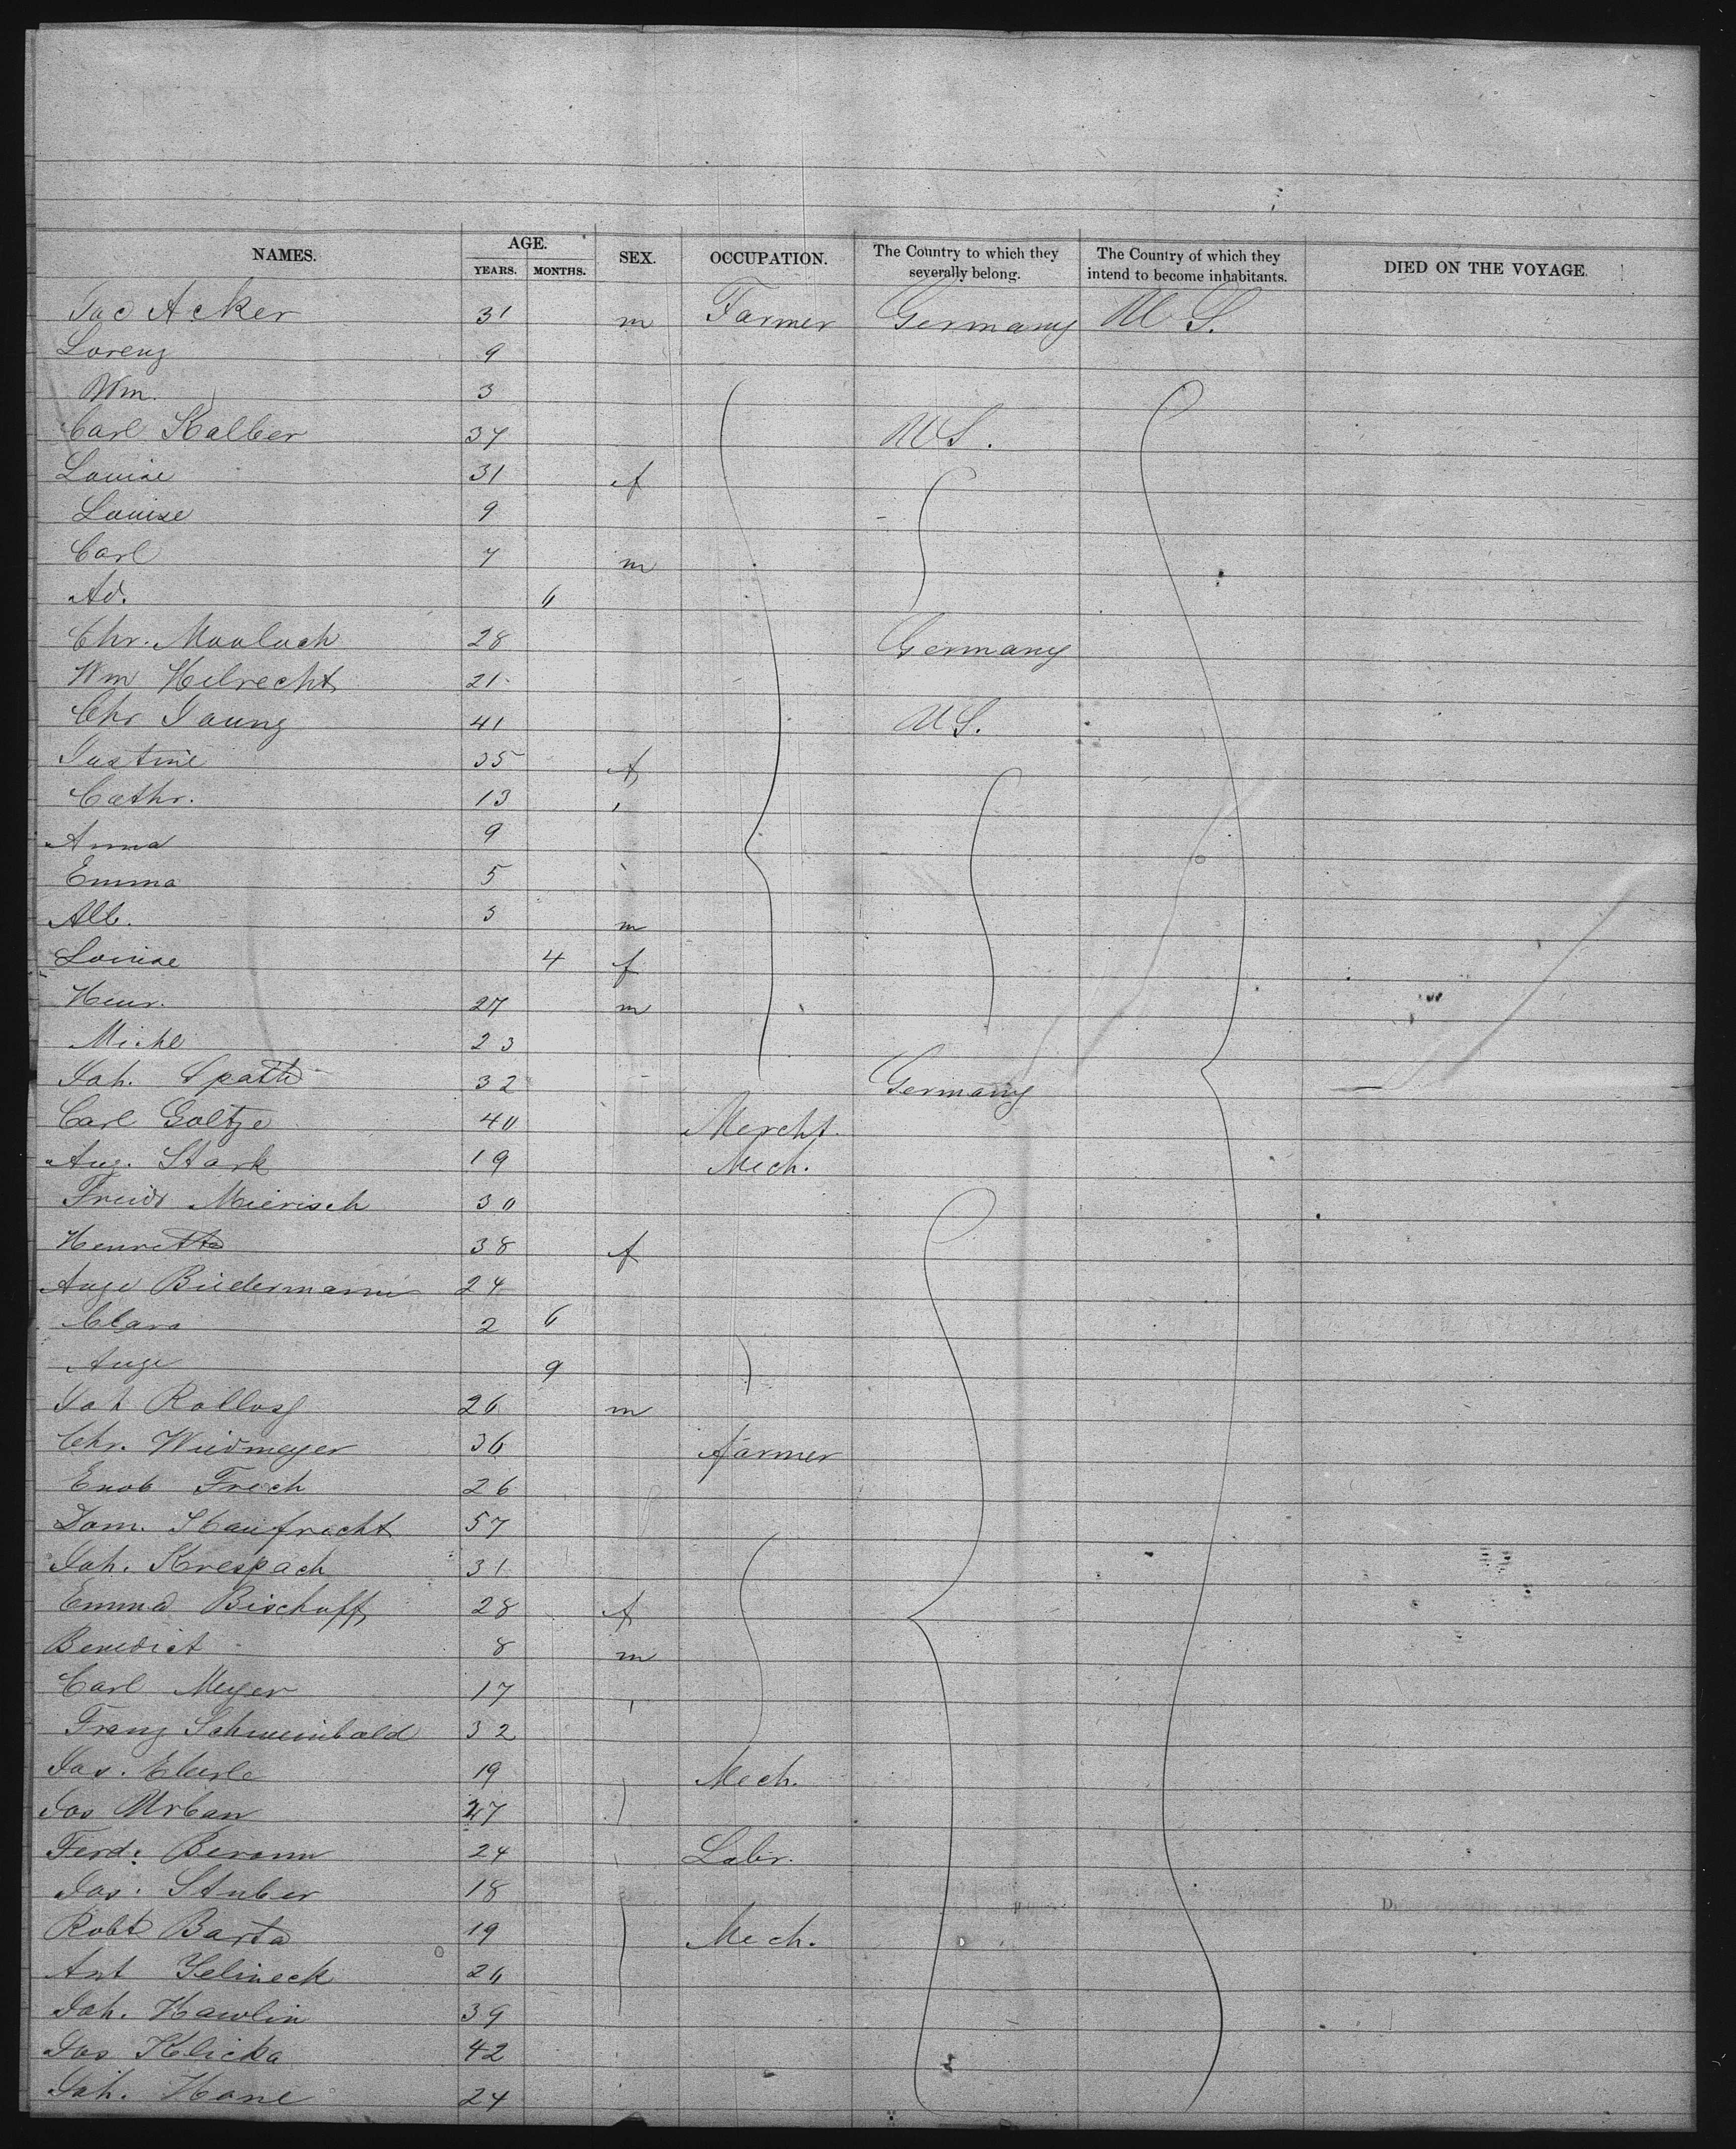 NAMES. AGE. SEX. OCCUPATION. The Country to which they severally belong. The Country of which they intend to become inhabitants. DIED ON THE VOYAGE.
YEARS. MONTHS.
Jac Acker 31 m Farmer Germany U S.
Lorenz 9
Wm. 3
Carl Kalber 37 U S.
Louise 31 f
Louise 9
Carl 7 m
Ad. 6
Chr. 28 Germany
Wm Helrecht 21
Chr Young 41 U S.
Justine 35 f
Cathr. 13
Anna 9
Emma 5
Alb. 3 m
Louise 4 f
Heinr. 27 m
Michl 23
Joh. Spath 32 Germany
Carl Goltze 40 Mercht.
Aug. Stark 19 Mech.
Friedr Mierisch 30
Henrette 38 f
Auge Biedermann 24
Clara 2 6
Auge 9
Joh 26 m
Chr. Wiedmeyer 36 farmer
Frech 26
Dom. 57
Joh. Krespach 31
Emma Bischoff 28 f
Benedict 8 m
Carl Meyer 17
Franz 32
Jos. Eberle 19 Mech.
Jos Urban 27
Ferd. Beramn 24 Labr.
Jos. Stuber 18
Robt Barta 19 Mech.
Ant Jelineck 26
Joh. Hawlin 39
Jos Klicka 42
Joh. Hane 24